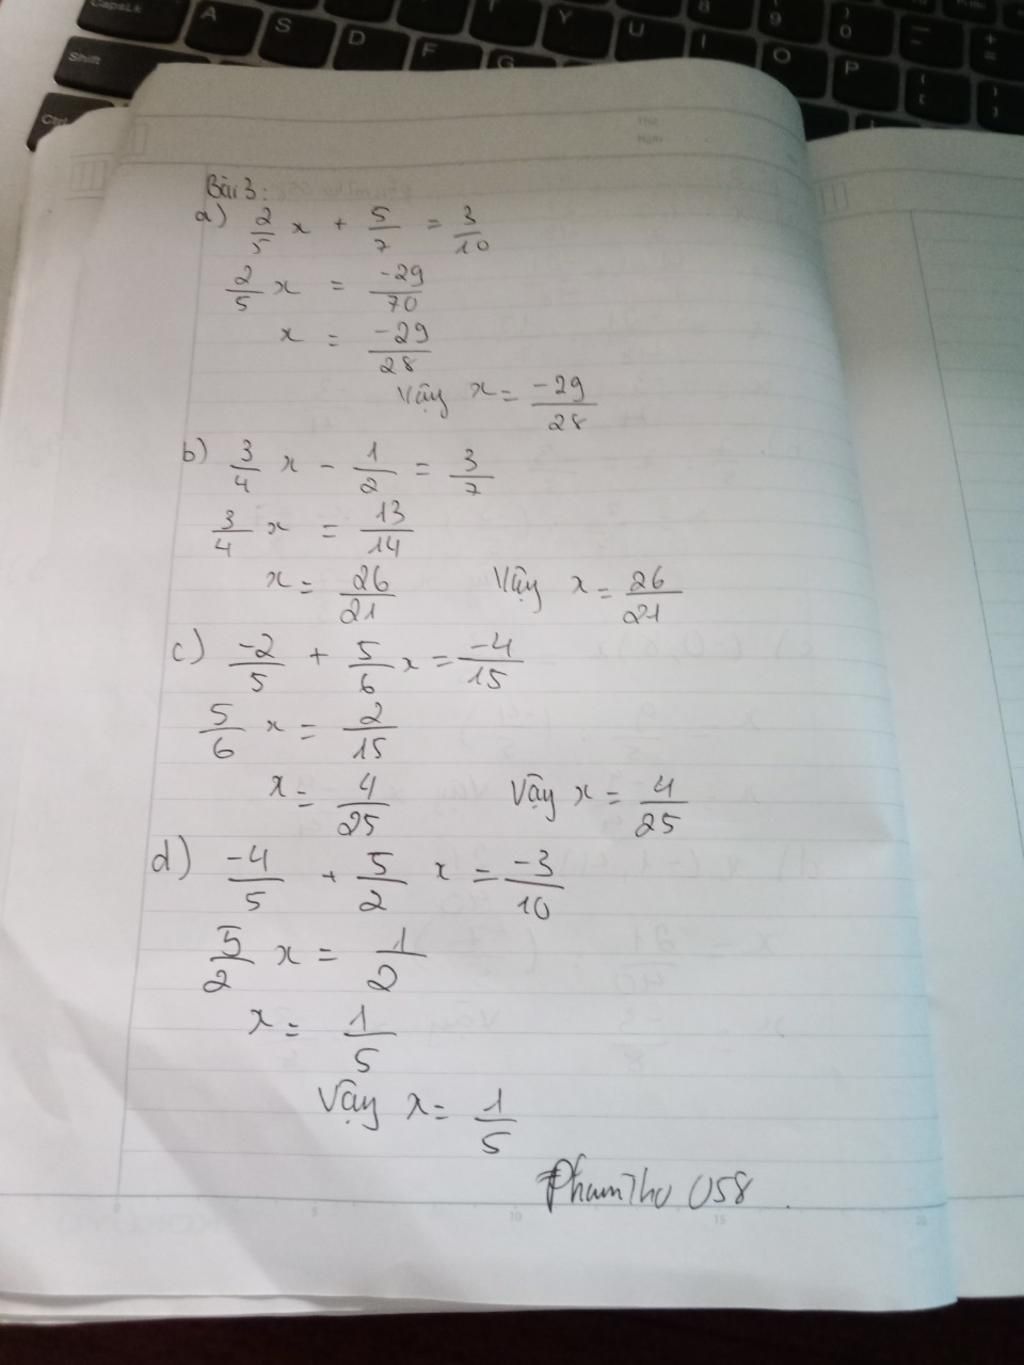 CapsLk A S D F G T Y U 8 I 9 O 0 P
Shift
Ctrl
Bài 3:
a) 2/5 x + 5/7 = 3/10
2/5 x = -29/70
x = -29/28
Vậy x = -29/28
b) 3/4 x - 1/2 = 3/7
3/4 x = 13/14
x = 26/21 Vậy x = 26/21
c) -2/5 + 5/6 x = -4/15
5/6 x = 2/15
x = 4/25 Vậy x = 4/25
d) -4/5 + 5/2 x = -3/10
5/2 x = 1/2
x = 1/5
Vậy x = 1/5
PhamThu 058.